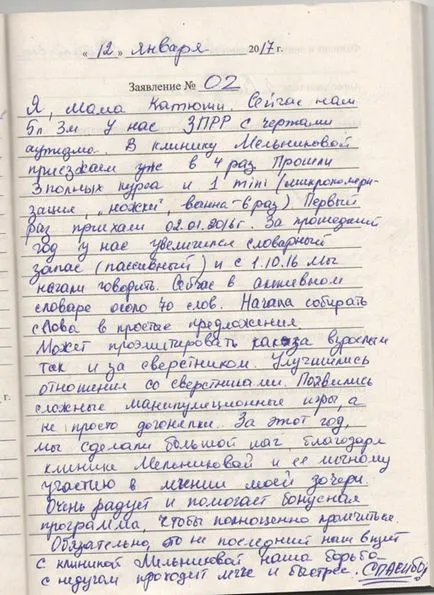 « 12 » января 2017 г.
Заявление № 02
Я, мама Катюши. Сейчас нам
5л 3м У нас ЗПРР с чертами
аутизма. В клинику Мельниковой
приезжаем уже в 4 раз Прошли
3 полных курса и 1 mini (микрополяри-
зация, „ножки", ванна-6 раз) Первый
раз приехали 02.01.2016 г. За прошедший
год у нас увеличился словарный
запас (пассивный) и с 1.10.16 мы
начали говорить. Сейчас в активном
словаре около 70 слов. Начала собирать
слова в простые предложения
Может проэмитировать как за взрослым
так и за сверстником. Улучшились
отношения со сверстниками. Появились
сложные манипуляционные игры, а
г.
не просто догонялки. За этот год,
мы сделали большой шаг, благодаря
клинике Мельниковой и ее личному
участию в лечении моей дочери.
Очень радует и помогает бонусная
программа, чтобы полноценно пролечиться.
Обязательно, это не последний наш визит
с клиникой Мельниковой наша борьба
с недугом проходит легче и быстрее. СПАСИБО!